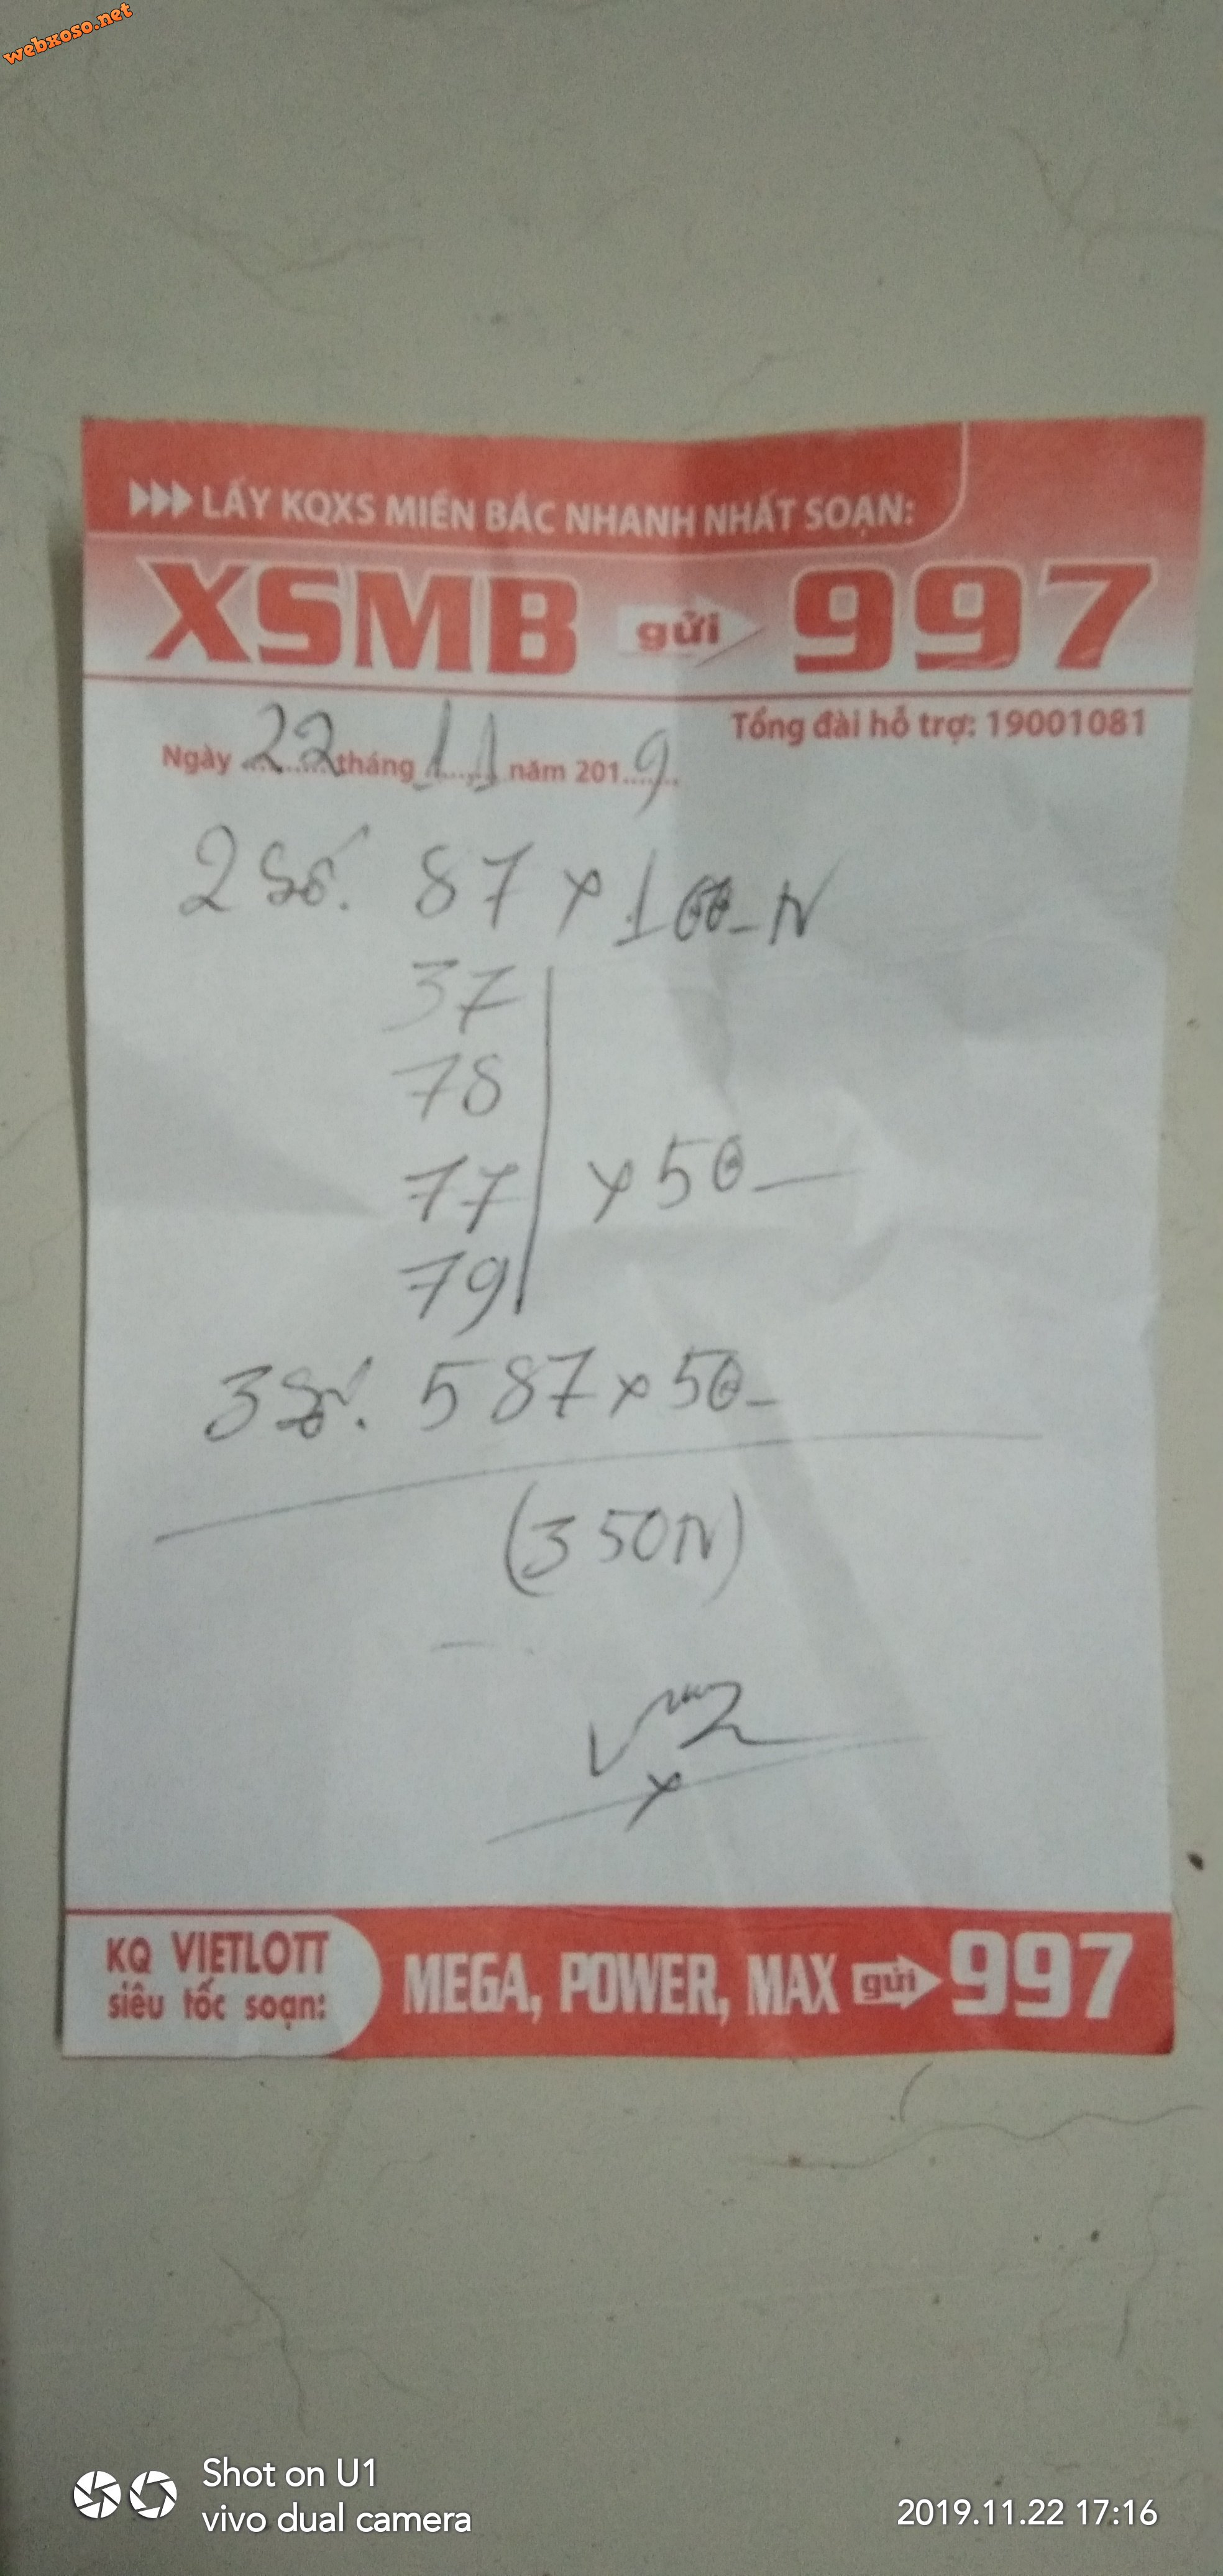 webxoso.net
LẤY KQXS MIỀN BẮC NHANH NHẤT SOẠN:
XSMB gửi 997
Tổng đài hỗ trợ: 19001081
Ngày 22 tháng 11 năm 2019
2 Số. 87 x 100 - N
37
78
77 x 50
79
3 Số. 587 x 50
(350N)
KQ VIETLOTT
siêu tốc soạn:
MEGA, POWER, MAX gửi 997
Shot on U1
vivo dual camera
2019.11.22 17:16